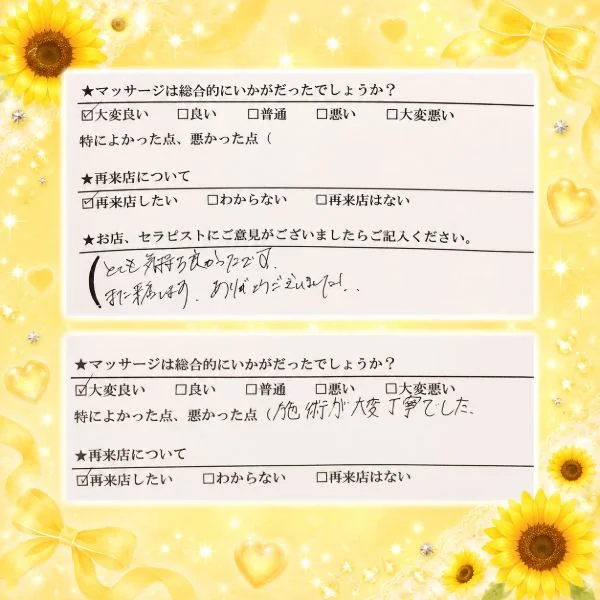 ★マッサージは総合的にいかがだったでしょうか？
☑大変良い　□良い　□普通　□悪い　□大変悪い
特によかった点、悪かった点（
★再来店について
☑再来店したい　□わからない　□再来店はない
★お店、セラピストにご意見がございましたらご記入ください。
（とても気持ち良かったです。
また来店します。ありがとうございました！．
★マッサージは総合的にいかがだったでしょうか？
☑大変良い　□良い　□普通　□悪い　□大変悪い
特によかった点、悪かった点（施術が大変丁寧でした．
★再来店について
☑再来店したい　□わからない　□再来店はない